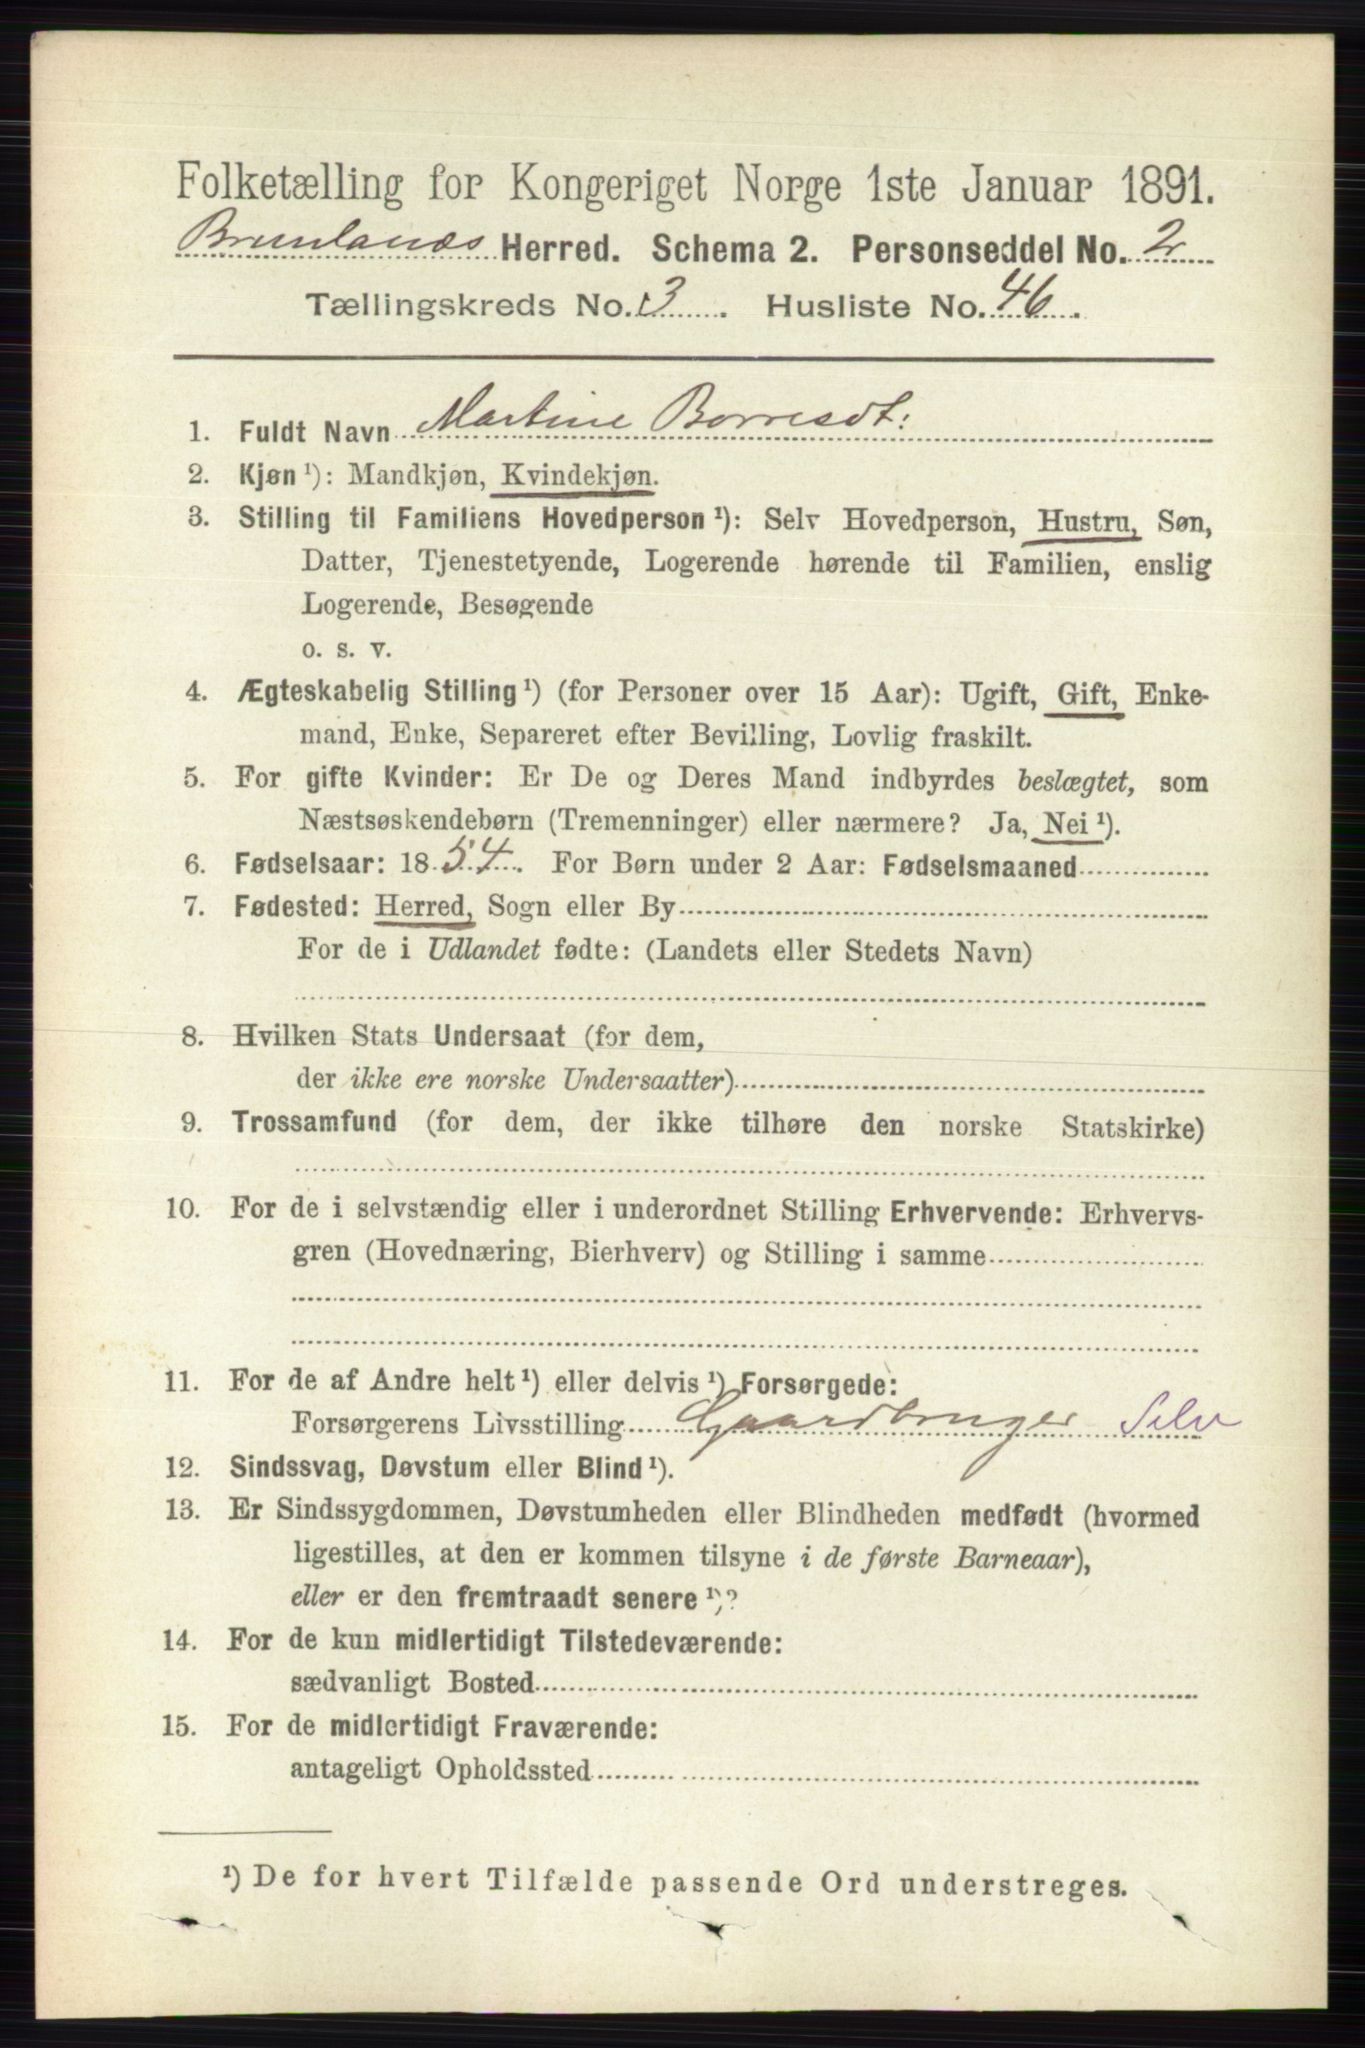 Folketælling for Kongeriget Norge 1ste Januar 1891.
Brunlanæs Herred. Schema 2. Personseddel No. 2
Tællingskreds No. 3. Husliste No. 46.
1. Fuldt Navn Martine Borresdt:
2. Kjøn ¹): Mandkjøn, Kvindekjøn.
3. Stilling til Familiens Hovedperson ¹): Selv Hovedperson, Hustru, Søn,
Datter, Tjenestetyende, Logerende hørende til Familien, enslig
Logerende, Besøgende
o. s. v.
4. Ægteskabelig Stilling ¹) (for Personer over 15 Aar): Ugift, Gift, Enke-
mand, Enke, Separeret efter Bevilling, Lovlig fraskilt.
5. For gifte Kvinder: Er De og Deres Mand indbyrdes beslægtet, som
Næstsøskendebørn (Tremenninger) eller nærmere? Ja, Nei ¹).
6. Fødselsaar: 1854. For Børn under 2 Aar: Fødselsmaaned
7. Fødested: Herred, Sogn eller By
For de i Udlandet fødte: (Landets eller Stedets Navn)
8. Hvilken Stats Undersaat (for dem,
der ikke ere norske Undersaatter)
9. Trossamfund (for dem, der ikke tilhøre den norske Statskirke)
10. For de i selvstændig eller i underordnet Stilling Erhvervende: Erhvervs-
gren (Hovednæring, Bierhverv) og Stilling i samme
11. For de af Andre helt ¹) eller delvis ¹) Forsørgede:
Forsørgerens Livsstilling Gaardbruger Selv
12. Sindssvag, Døvstum eller Blind ¹).
13. Er Sindssygdommen, Døvstumheden eller Blindheden medfødt (hvormed
ligestilles, at den er kommen tilsyne i de første Barneaar),
eller er den fremtraadt senere ¹)?
14. For de kun midlertidigt Tilstedeværende:
sædvanligt Bosted
15. For de midlertidigt Fraværende:
antageligt Opholdssted
¹) De for hvert Tilfælde passende Ord understreges.